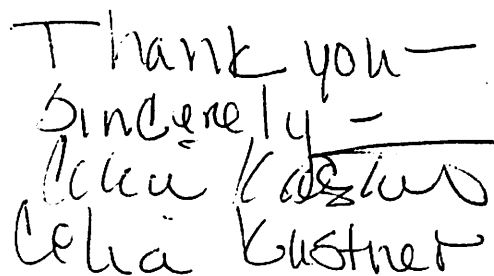 Thank you—
Sincerely -
Celia Kustner
Celia Kustner